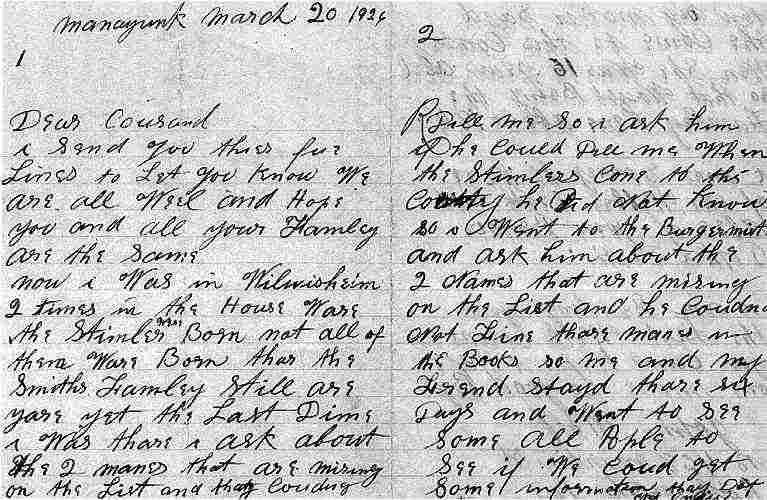 manayunk march 20 1926
1
Dear Cousand
i Send you thies fue
Lines to Let you Know We
are all Well and Hope
you and all your Famley
are the Same
now i Was in Wilwisheim
2 times in the House Ware
the Stimler Ware Born not all of
them Ware Born thar the
Smiths Famley Still are
yare yet the Last Dime
i Was thare i ask about
the 2 manes that are mising
on the List and thay Couding
2
Pell me so i ask him
if he Could Pell me When
the Stimlers Cone to the
he Did Not Know
so i Went to the Burgermist
and ask him about the
2 Names that are mising
on the List and he Coudn
Not Fine thare manes in
the Books so me and my
Friend Stayd thare six
Days and Went to See
Some all Pople to
See if We Coud get
Some information thay Did